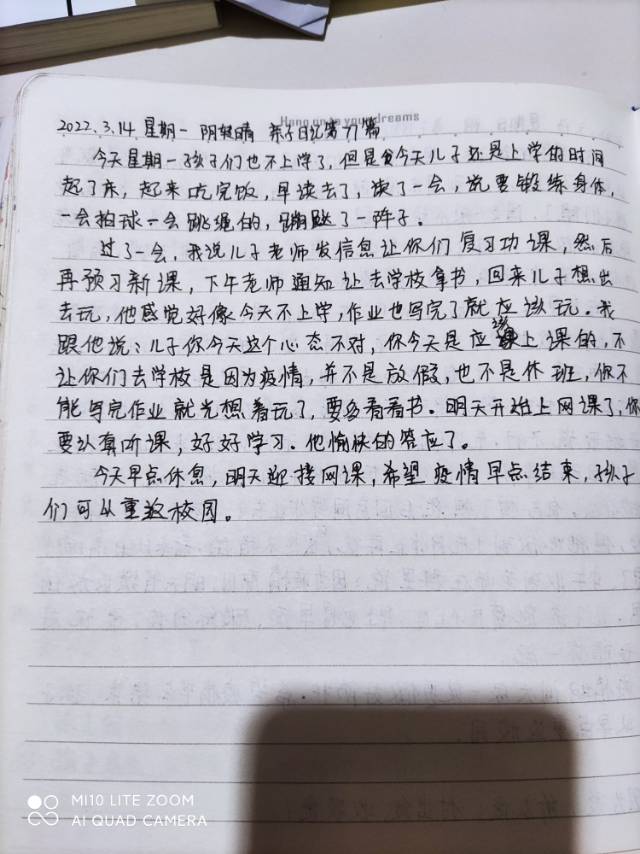 Hang on to your dreams
2022.3.14 星期一 阴转晴 亲子日记第77篇
今天星期一孩子们也不上学了,但是今天儿子还是上学的时间
起了床,起来吃完饭,早读去了,读了一会,说要锻练身体,
一会拍球一会跳绳的,蹦跶了一阵子。
过了一会,我说儿子老师发信息让你们复习功课,然后
再预习新课,下午老师通知让去学校拿书,回来儿子想出
去玩,他感觉好像今天不上学,作业也写完了就应该玩。我
跟他说:儿子你今天这个心态不对,你今天是应该上课的,不
让你们去学校是因为疫情,并不是放假,也不是休班,你不
能写完作业就光想着玩了,要多看看书。明天开始上网课了,你
要认真听课,好好学习。他愉快的答应了。
今天早点休息,明天迎接网课,希望疫情早点结束,孩子
们可以重返校园。
MI 10 LITE ZOOM
AI QUAD CAMERA